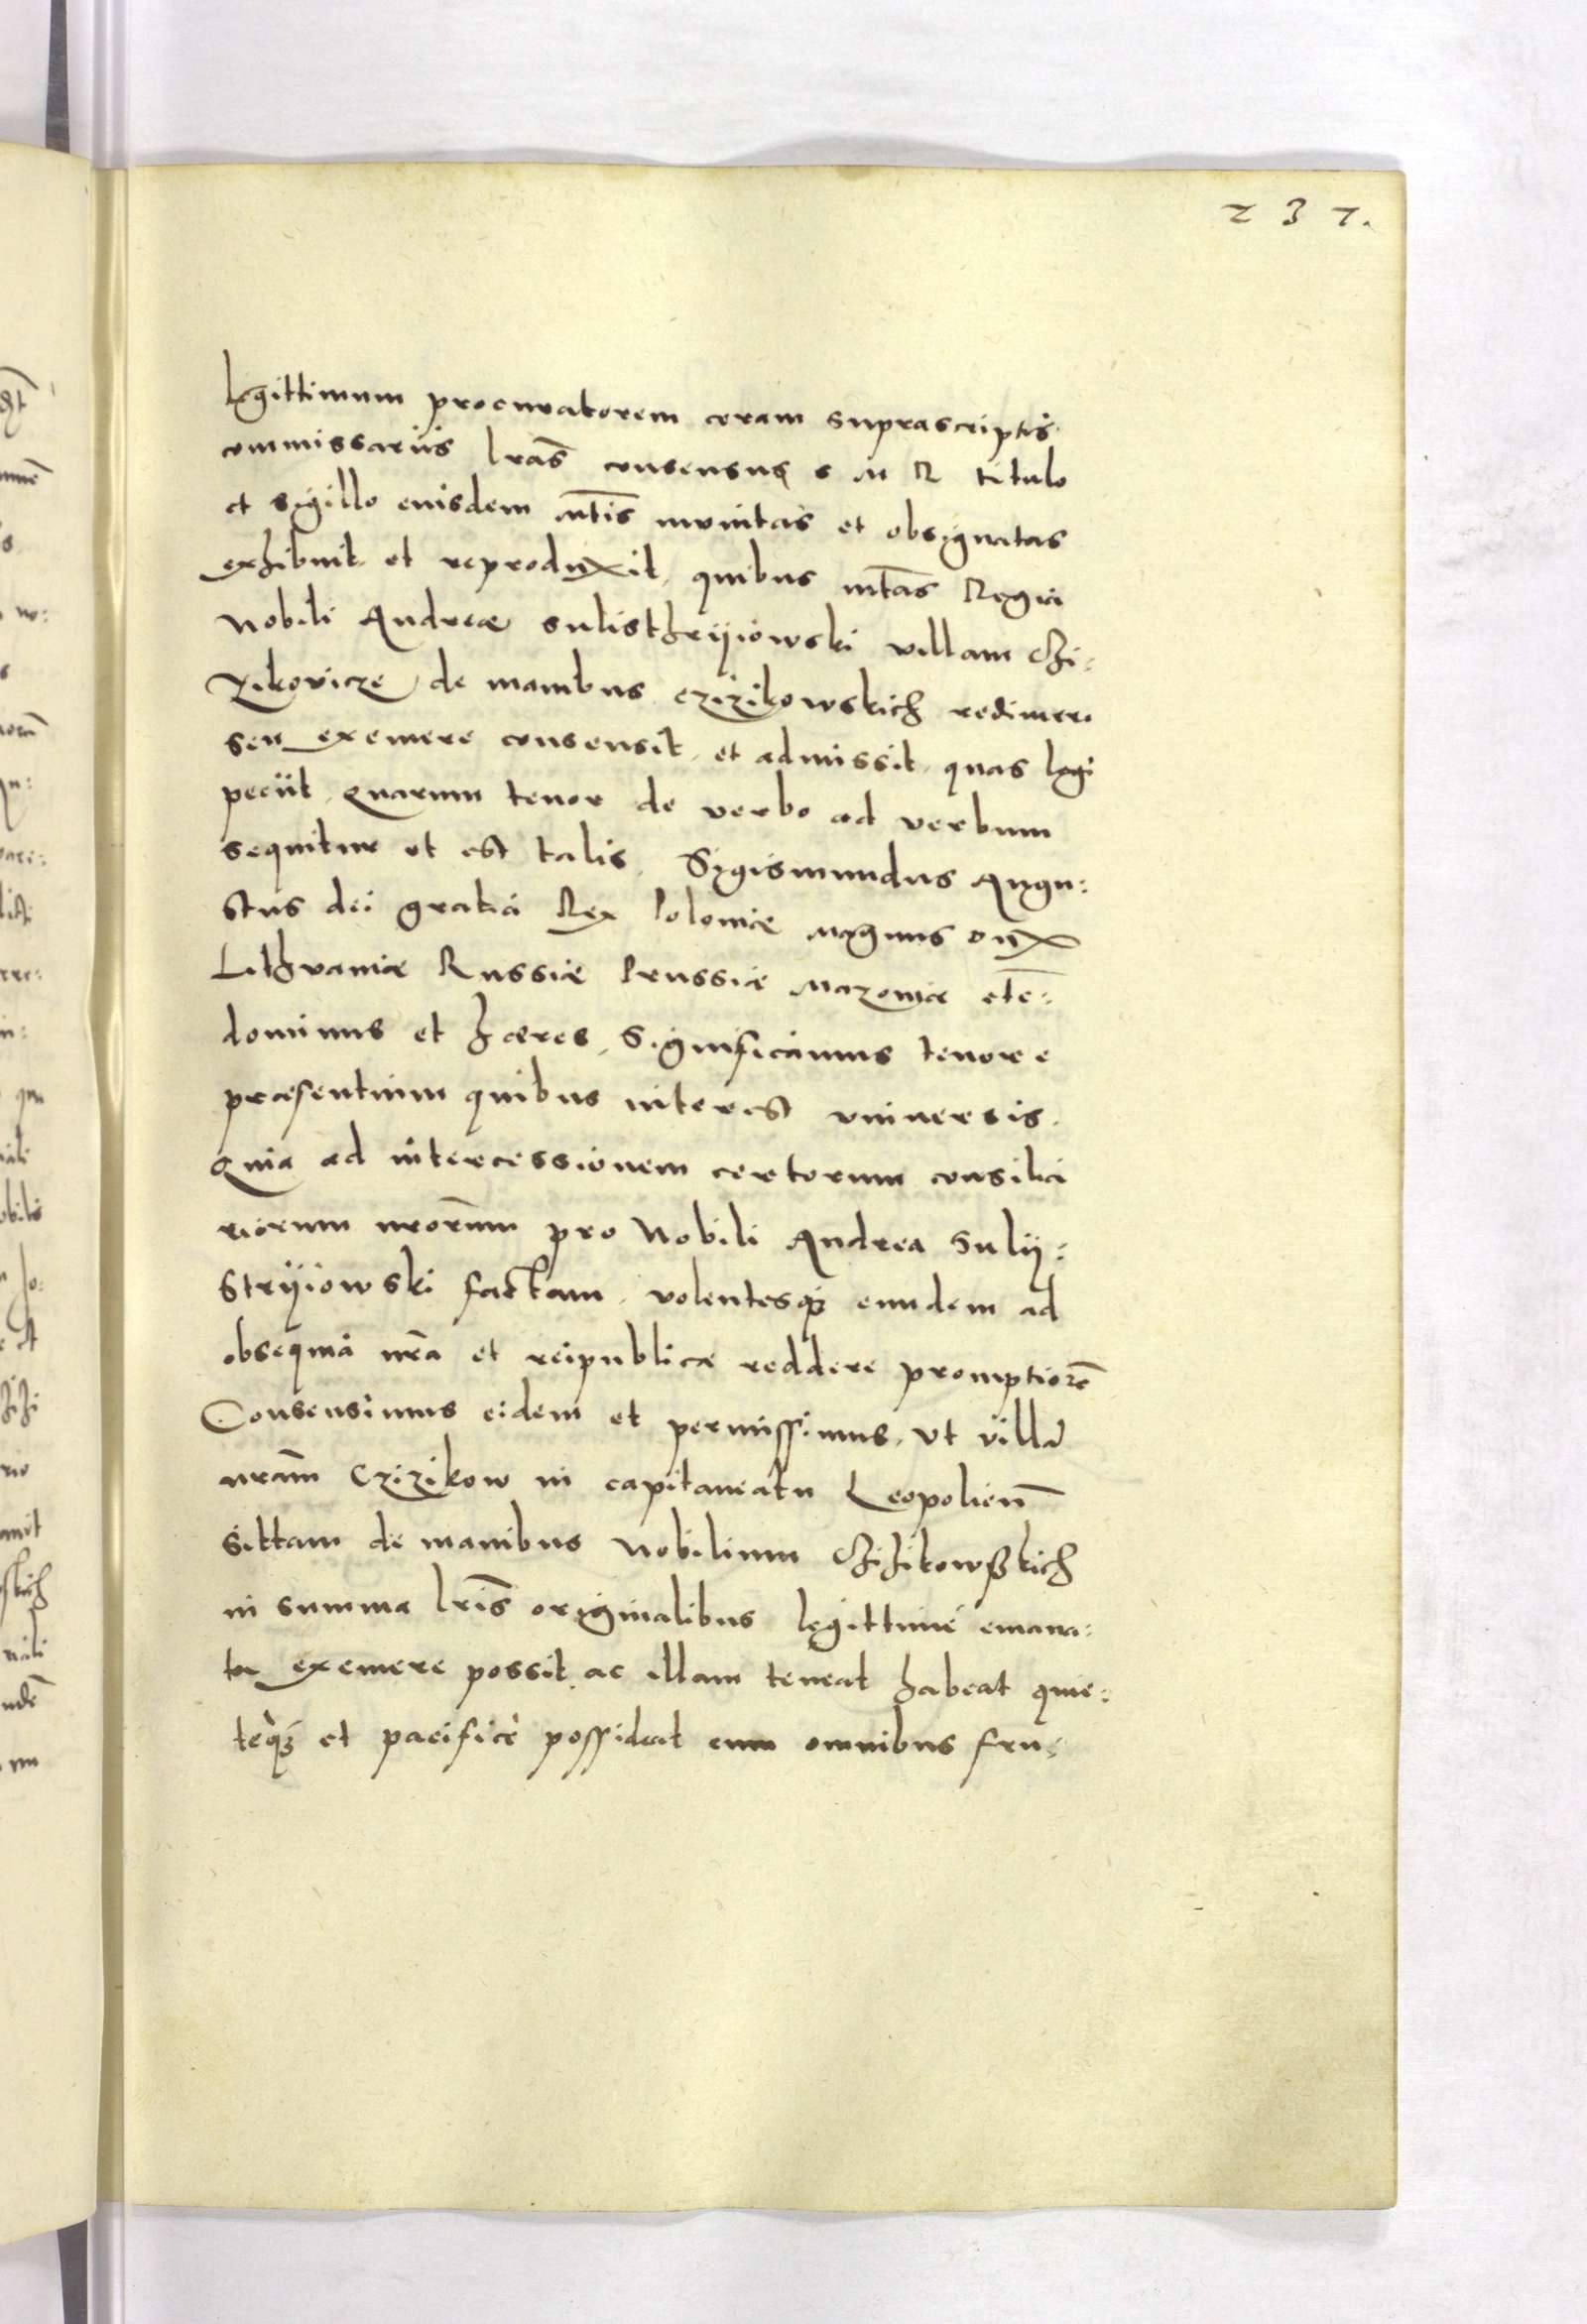 237.
legittimum procuratorem coram suprascriptis
commissariis lr̃as consensus S M R titulo
et sigillo euisdem Mt̃is munitas et obsignatas
exhibuit et reproduxit, quibus mt̃as Regia
Nobili Andreæ Sulisthryiowski villam Chi:
zikovicze de manibus Czizikowskich redimere
seu exemere consensit, et admissit, quas legi
peciit, Quarum tenor de verbo ad verbum
sequitur et est talis, Sygismundus Augu:
stus dei gratia Rex Poloniæ Magnus Dux
Lithvaniæ Russiæ Prussiæ Mazoviæ etc̃:
dominus et hæres, Significamus tenore
præsentium quibus interest vniuersis,
Quia ad intercessionem certorum consilia
riorum nr̃orum pro Nobili Andrea Suly:
stryiowski factam, volentesq₃ eundem ad
obsequia nr̃a et reipublicæ reddere promptiorẽ
Consensimus eidem et permissimus, vt villã
nr̃am Czizikow in capitaneatu Leopolien̄
sittam de manibus Nobilium Chizikowskich
in summa lr̃is originalibus legittimè emana:
ta exemere possit, ac illam teneat habeat quie:
teq₃ et pacificè possideat cum omnibus fru: